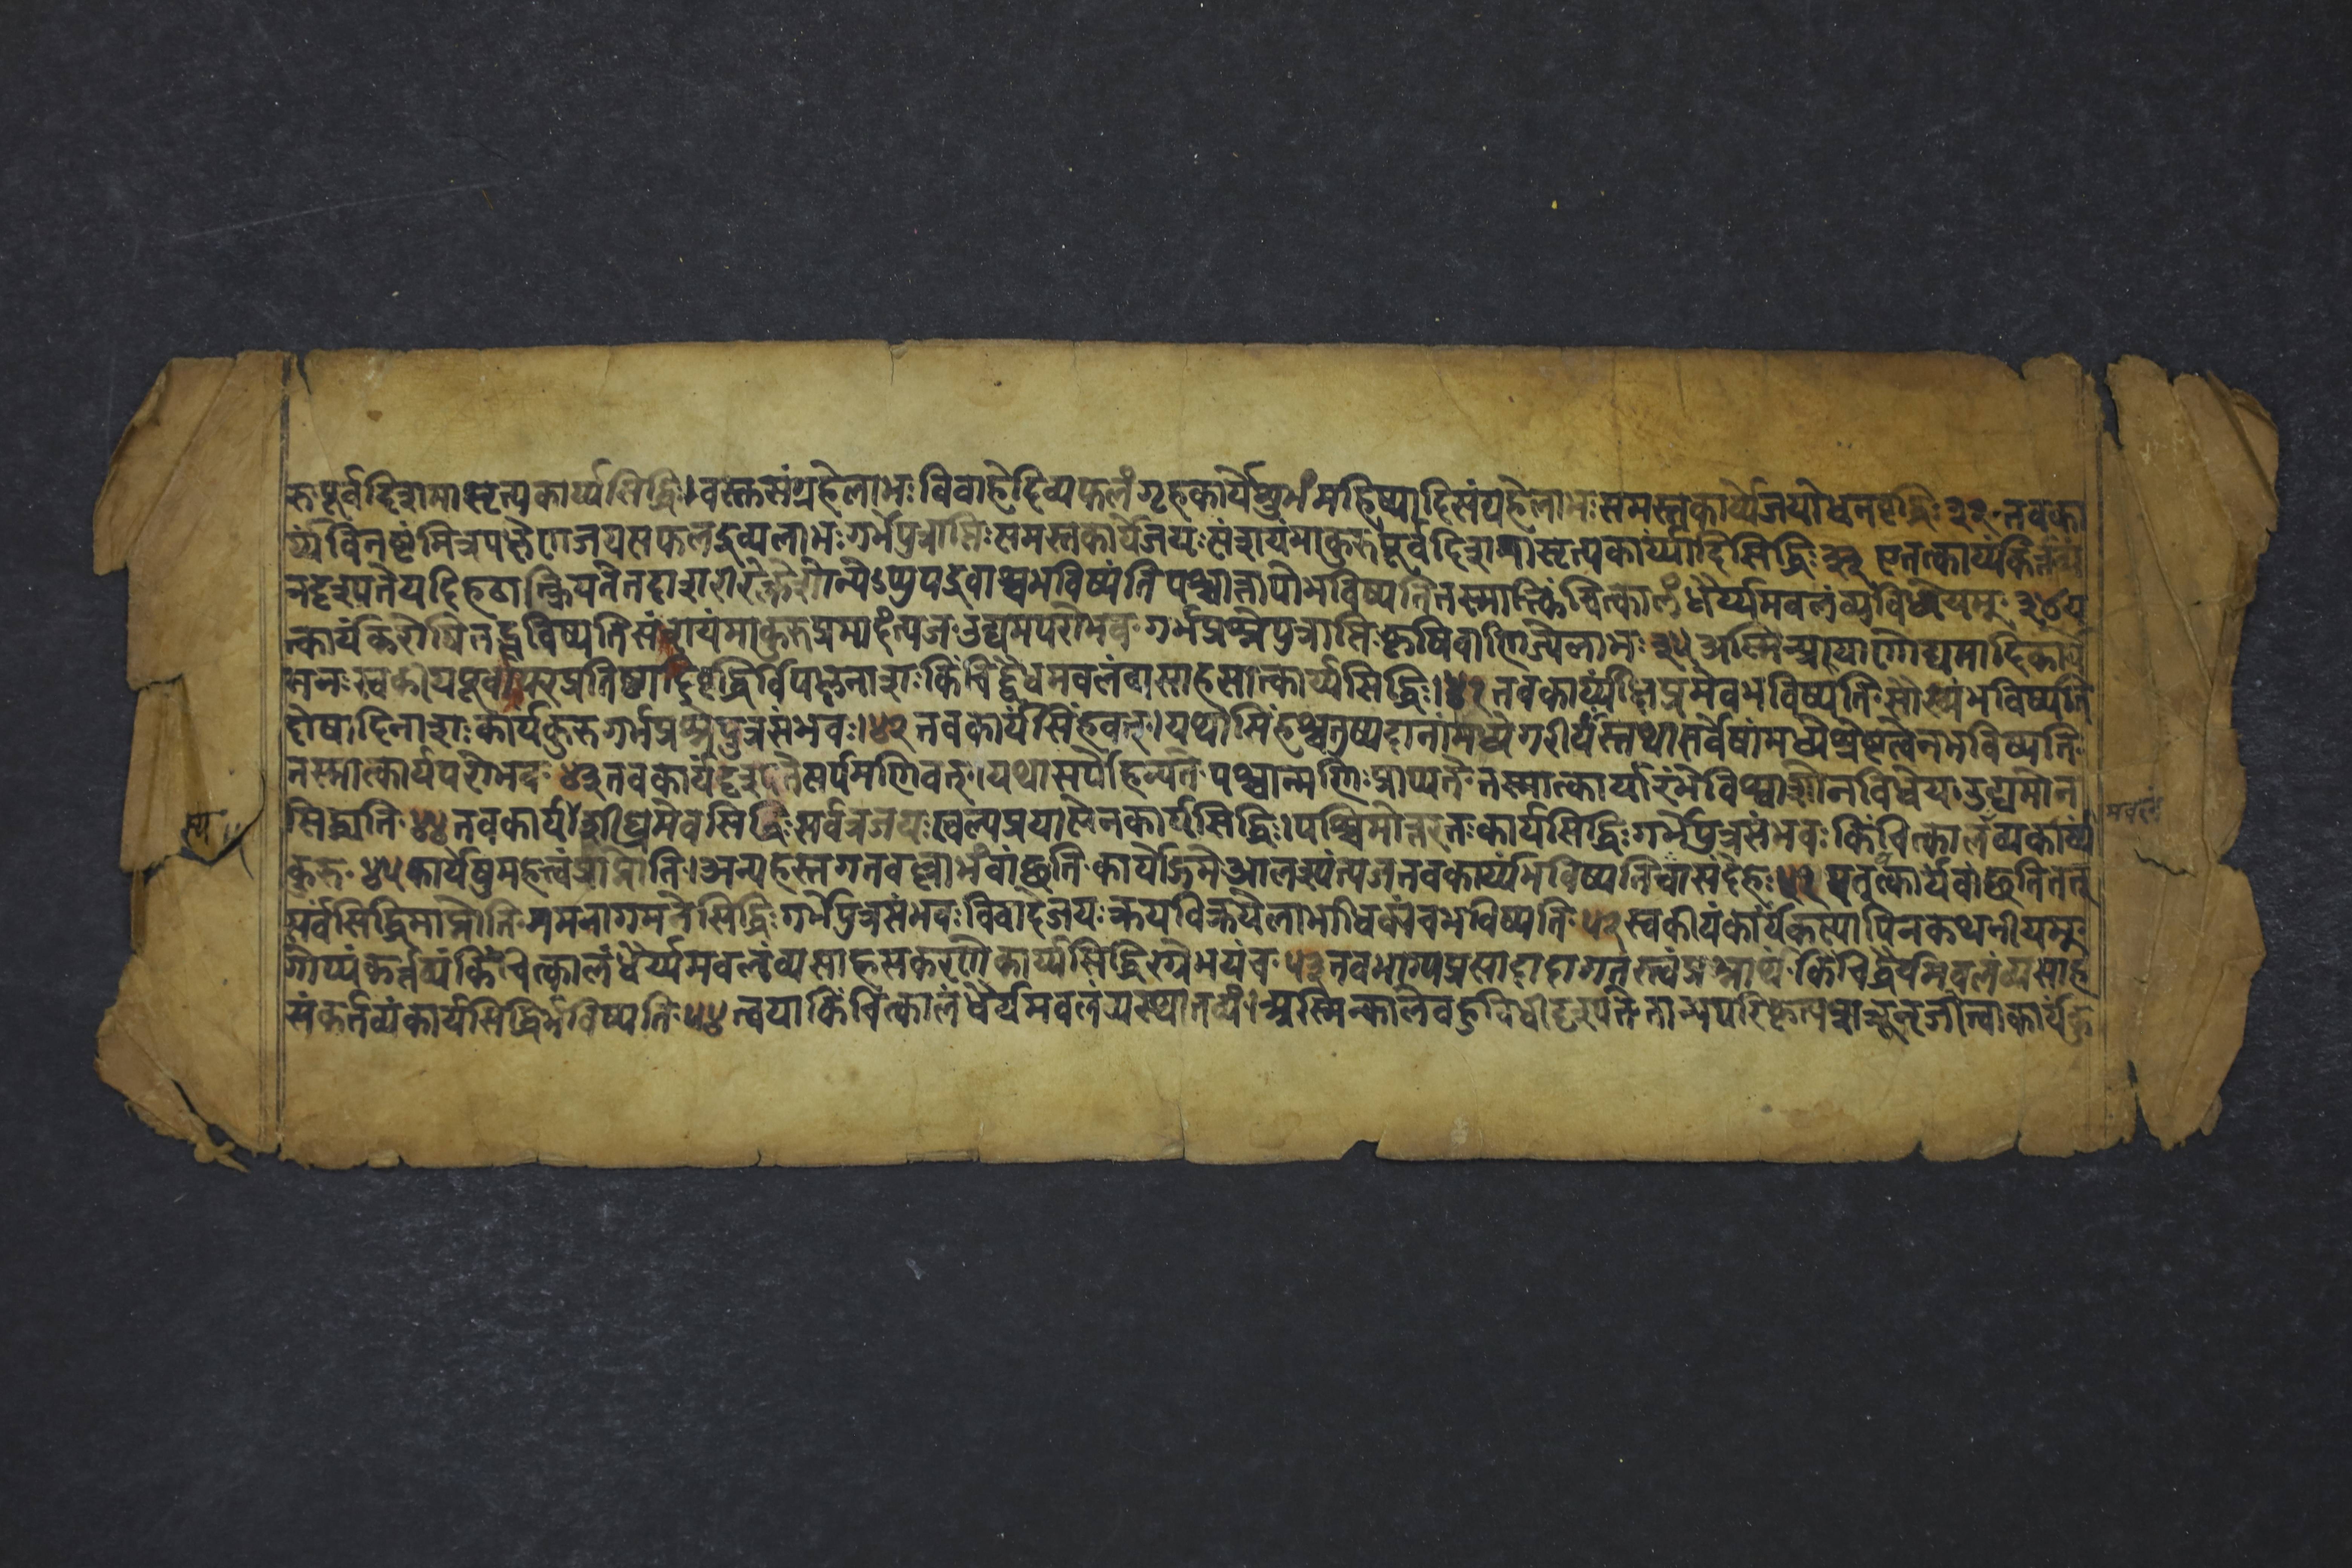 रु पूर्वदिशमासृत्य कार्य्यसिद्धिः। वस्त्रसंग्रहे लाभः विवाहे दिव्यफलं गृहकार्ये शुभं महिष्यादिसंग्रहे लाभः समस्तकार्य्ये जयो धनवृद्धिः ३२ तवका
र्य्यं विनष्टं मित्रपक्षे जयसफलद्रव्यलाभः गर्भे पुत्राप्तिः समस्तकार्ये जयः संशयं मा कुरु पूर्वदिशमासृत्य कार्य्यादिसिद्धिः एतत्कार्य्यं
न दृश्यते यदि हठात्क्रियते तदा शरीरे ऽप्युपद्रवाश्च भविष्यंति पश्चात्तापो भविष्यति तस्मात्किंचित्कालं धैर्य्यमवलंव्य विधेयम् ३४
त्कार्यं करोषि तद्भविष्यति संशयं मा कुरु त्यज उद्यमपरो भव गर्भप्रश्ने पुत्राप्ति कृषिवाणिज्ये लाभः ३५ अस्मिन् कार्ये
मनः स्वकीयपूर्वापरप्रतिष्ठादिवृद्धिर्विपक्षनाशः किंचिद्धैर्यमवलंव्य साहसात्कार्य्यसिद्धिः। ४१ तवकार्य्यं क्षिप्रमेव भविष्यति सौख्यं भविष्यति
दोषादिनाशः कार्यं कुरु गर्भप्रश्ने पुत्रसंभवः। ४२ तवकार्यं सिंहवत्। यथा सिंहश्चतुष्पदानां मध्ये गरीयस्तथा सर्वेषां मध्ये श्रेष्ठत्वेन भविष्यति
तस्मात्कार्यपरो भव ४३ तवकार्यं दृश्यते सर्पमणिवत्। यथा सर्पे हिन्यते पश्चान्मणिः प्राप्यते तस्मात्कार्यारंभे विश्वासो न विधेय उद्यमेन
सिद्ध्यति ४४ तवकार्यं शीघ्रमेव सिद्धिः सर्वत्र जयः स्वल्पप्रयासेन कार्यसिद्धिः। पश्चिमोत्तरतः कार्यसिद्धिः गर्भे पुत्रसंभवः किंचित्कालं व्य कार्य्यं मवलं
कुरु ४५ कार्येषु महत्त्वं प्राप्नोति। अन्यहस्तगतवस्तुलाभं वांछति कार्ये आलस्यं त्यज तवकार्य्यं भविष्यति वा संदेहः ५१ यत् यत्कार्यं वांछति तत्
सर्वसिद्धिमाप्नोति गमनागमने सिद्धिः गर्भे पुत्रसंभवः विवादे जयः क्रयविक्रये लाभाधिक्यं च भविष्यति ५२ स्वकीयं कार्यं कस्यापि न कथनीयम्
गोप्यं कर्त्तव्यं किंचित्कालं धैर्य्यमवलंव्य साहसकरणे कार्य्यसिद्धि भयं च ५३ तव भाग्यप्रसादादागत किंचिद्धैर्यमवलंव्य साह
सं कर्तव्यं कार्यसिद्धिर्भविष्यति ५४ त्वया किंचित्कालं धैर्य्यमवलंव्य स्थातव्यं। अस्मिन्काले दृश्यते कार्यं